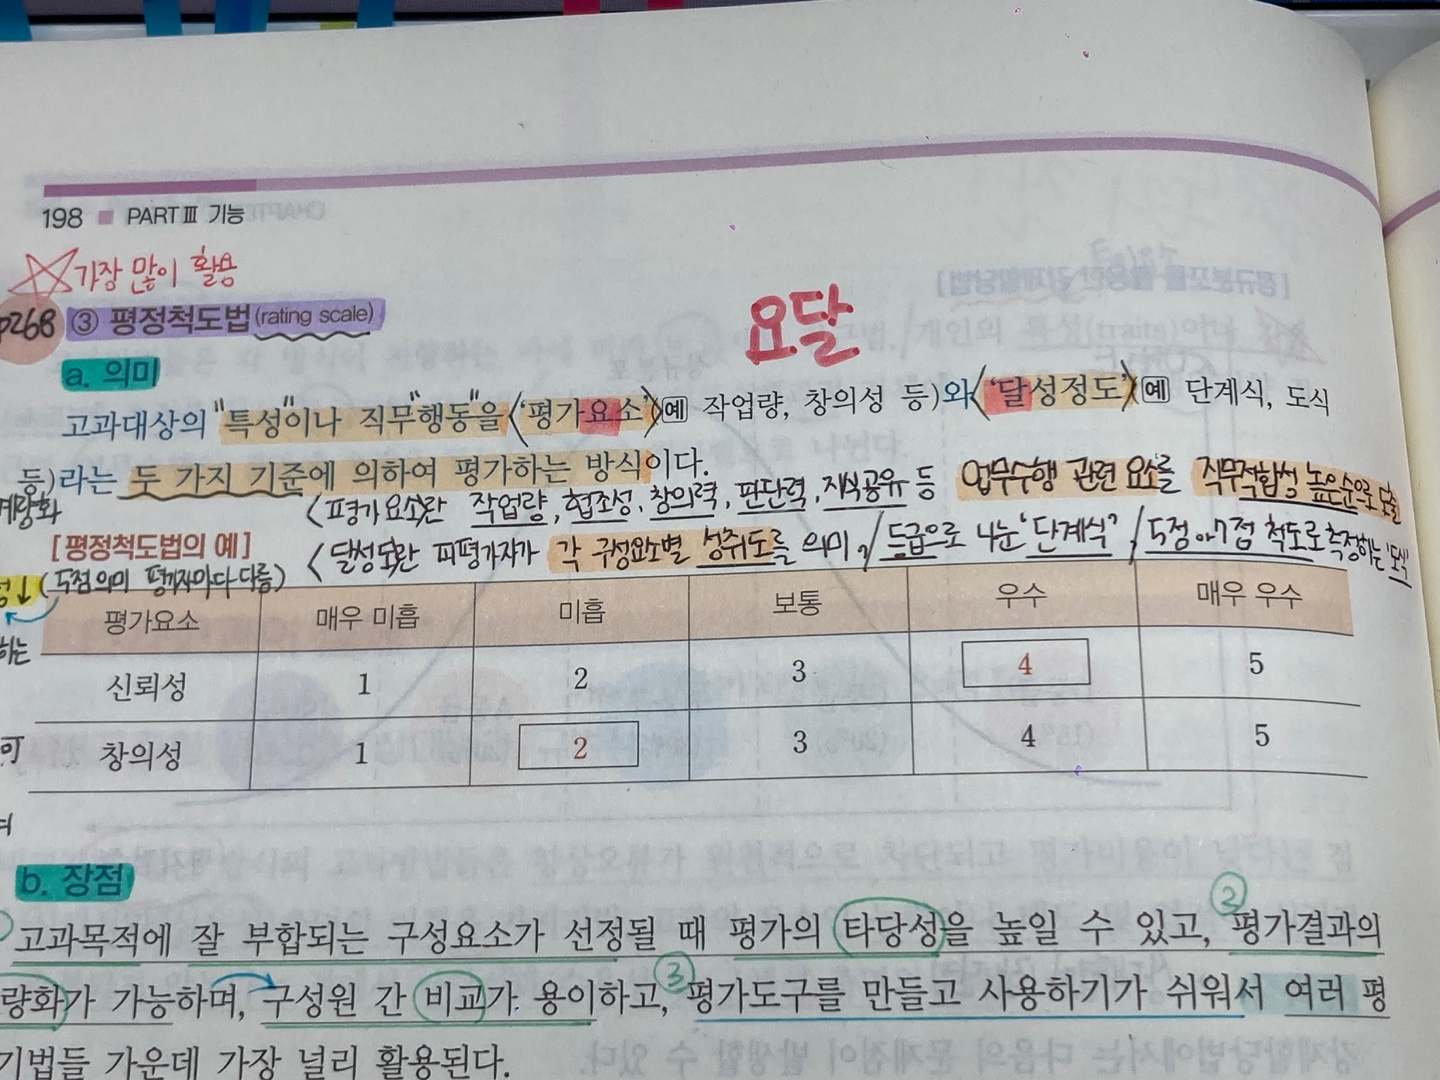 198 ■ PART Ⅲ 기능
가장 많이 활용
요달
p268 ③ 평정척도법(rating scale)
a. 의미
고과대상의 "특성"이나 직무"행동"을 〈'평가요소'〉(예 작업량, 창의성 등)와 〈'달성정도'〉(예 단계식, 도식
등)라는 두 가지 기준에 의하여 평가하는 방식이다.
〈평가요소〉란 작업량, 협조성, 창의력, 판단력, 지식공유 등 업무수행 관련 요소를 직무적합성 높은순으로 도출
계량화
[평정척도법의 예]
〈달성도〉란 피평가자가 각 구성요소별 성취도를 의미, / 등급으로 나눈 '단계식' / 5점이나 7점 척도로 측정하는 '도식'
(5점 의미 평가자마다 다름)
평가요소 매우 미흡 미흡 보통 우수 매우 우수
하는
신뢰성 1 2 3 4 5
창의성 1 2 3 4 5
b. 장점
②
고과목적에 잘 부합되는 구성요소가 선정될 때 평가의 타당성을 높일 수 있고, 평가결과의
③
량화가 가능하며, 구성원 간 비교가 용이하고, 평가도구를 만들고 사용하기가 쉬워서 여러 평
기법들 가운데 가장 널리 활용된다.